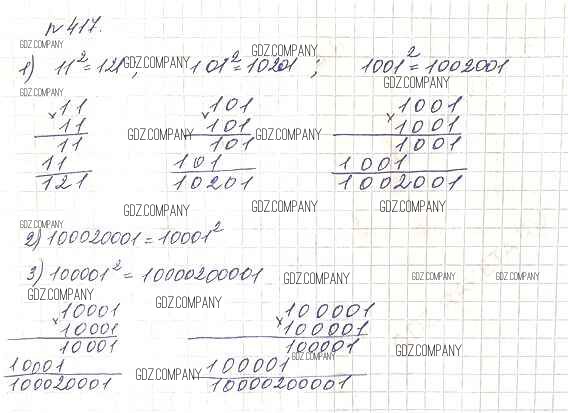 N 417.
GDZ.COMPANY
1) 11² = 121 GDZ.COMPANY ; 101² = 10201 GDZ.COMPANY ; 1001² = 1002001
GDZ.COMPANY GDZ.COMPANY
11 101 1001
× 11 GDZ.COMPANY × 101 GDZ.COMPANY × 1001
11 101 1001
11 101 1001
121 10201 1002001
GDZ.COMPANY GDZ.COMPANY GDZ.COMPANY
GDZ.COMPANY
2) 100020001 = 10001²
3) 100001² = 10000200001 GDZ.COMPANY GDZ.COMPANY GDZ.COMPANY
GDZ.COMPANY GDZ.COMPANY
10001 100001
× 10001 × 100001
10001 100001 GDZ.COMPANY
10001 100001 GDZ.COMPANY
100020001 GDZ.COMPANY 10000200001